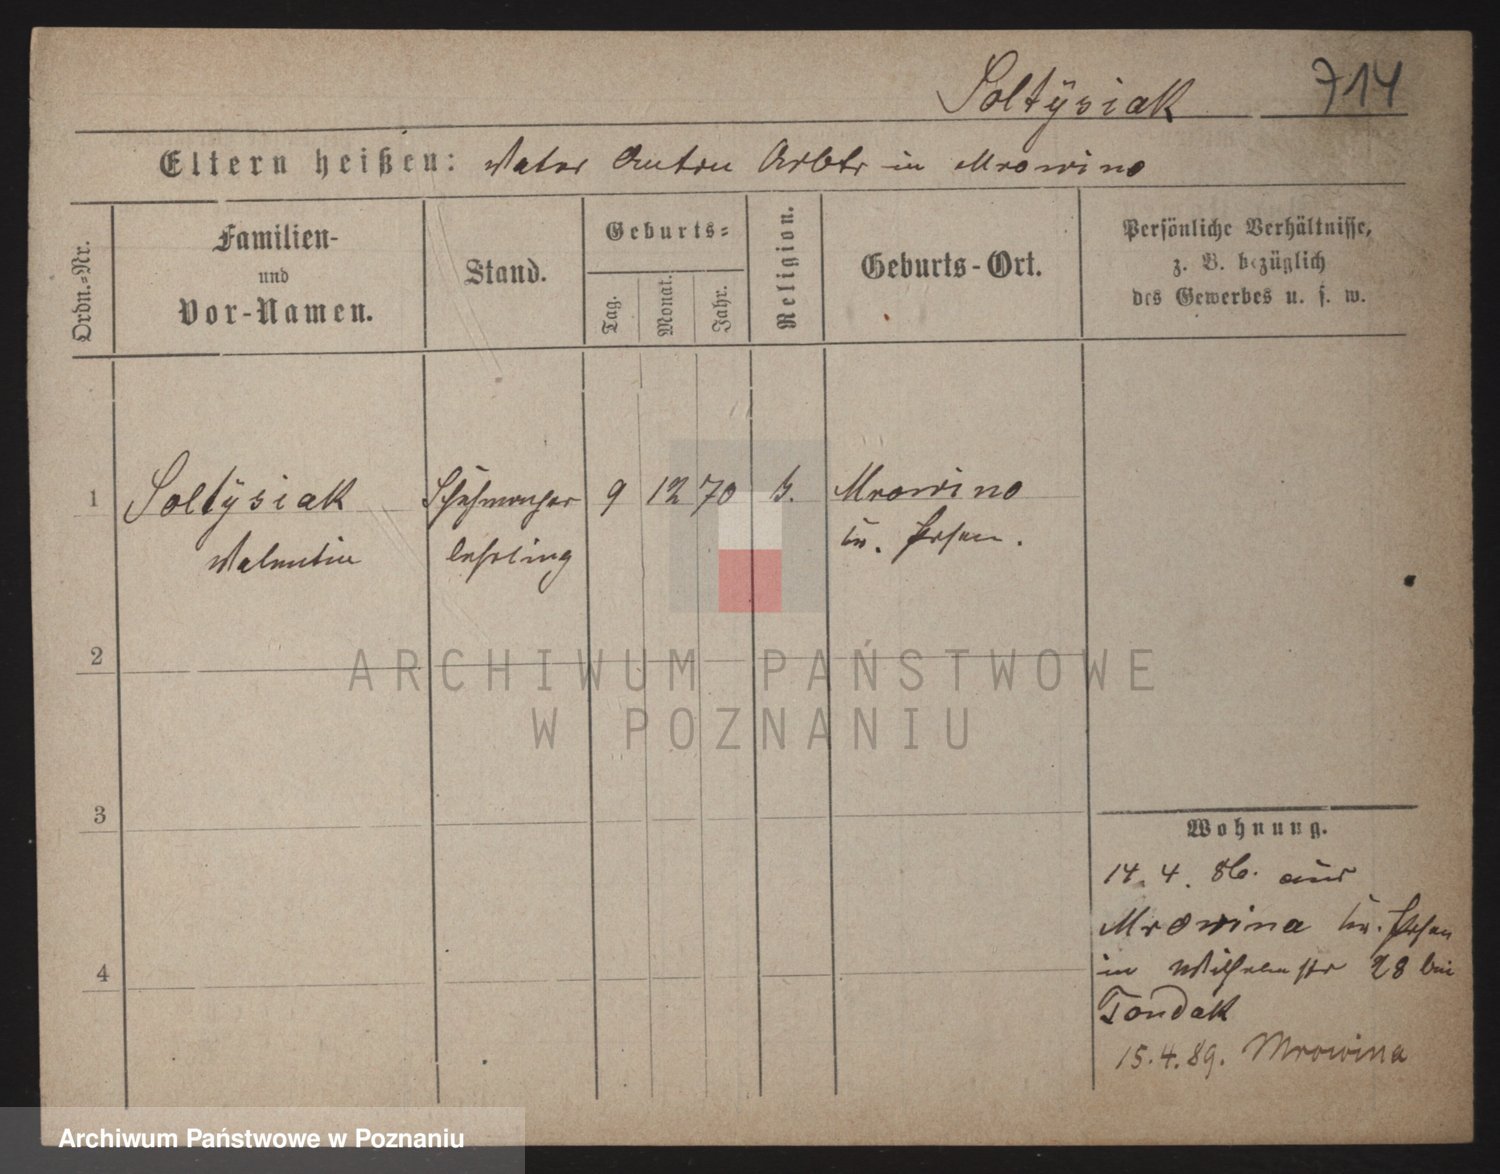 Soltÿsiak 714
Eltern heißen: Vater Anton Arbtr in Mrowino
Ordn.-Nr.
Familien-
und
Vor-Namen.
Stand.
Geburts-
Tag.
Monat.
Jahr.
Religion.
Geburts-Ort.
Persönliche Verhältnisse,
z. B. bezüglich
des Gewerbes u. s. w.
1 Soltÿsiak Schuhmacher 9 12 70 k. Mrowino
Valentin lehrling Kr. Posen.
2
ARCHIWUM PAŃSTWOWE
W POZNANIU
3
Wohnung.
14. 4. 86. aus
Mrowina Kr. Posen
4
in Wilhelmstr 28 bei
Tondak
15.4.89. Mrowina
Archiwum Państwowe w Poznaniu